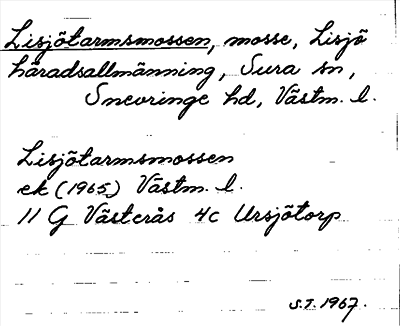 Lisjötarmsmossen, mosse, Lisjö
häradsallmänning, Sura sn,
Snevringe hd, Västm. l.
Lisjötarmsmossen
ek (1965) Västm. l.
11 G Västerås 4c Ursjötorp
S.T. 1967.